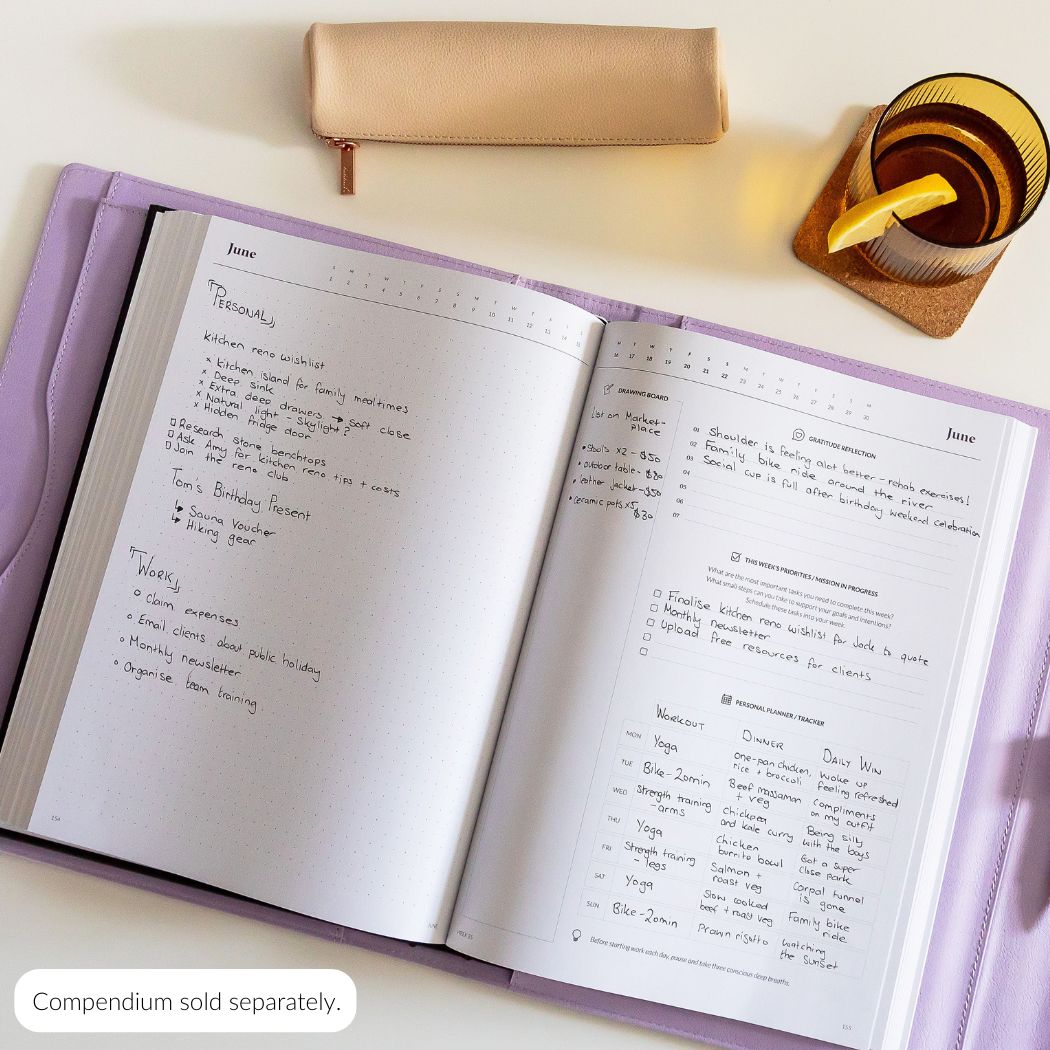 June
S M T W T F S S M T W T F S S
1 2 3 4 5 6 7 8 9 10 11 12 13 14 15
PERSONAL
Kitchen reno wishlist
x kitchen island for family mealtimes
x Deep sink
x Extra deep drawers → soft close
x Natural light - skylight?
x Hidden fridge door
Research stone benchtops
Ask Amy for kitchen reno tips + costs
Join the reno club
Tom's Birthday Present
↳ Sauna Voucher
↳ Hiking gear
WORK
Claim expenses
Email clients about public holiday
Monthly newsletter
Organise team training
154
JUNE
M T W T F S S M T W T F S S M
16 17 18 19 20 21 22 23 24 25 26 27 28 29 30
June
DRAWING BOARD
List on Market-
place
• Stools x2 - $50
• outdoor table - $80
• leather jacket - $50
• ceramic pots x5
$30
GRATITUDE REFLECTION
01 Shoulder is feeling alot better - rehab exercises!
02 Family bike ride around the river
03 Social cup is full after birthday weekend celebration
04
05
06
07
THIS WEEK'S PRIORITIES / MISSION IN PROGRESS
What are the most important tasks you need to complete this week?
What small steps can you take to support your goals and intentions?
Schedule these tasks into your week.
Finalise kitchen reno wishlist for Jack to quote
Monthly newsletter
Upload free resources for clients
PERSONAL PLANNER / TRACKER
WORKOUT DINNER DAILY WIN
MON Yoga one-pan chicken, rice + broccoli woke up feeling refreshed
TUE Bike - 20min Beef massaman + veg Compliments on my outfit
WED Strength training - arms Chickpea and kale curry Being silly with the boys
THU Yoga Chicken burrito bowl Got a super close park
FRI Strength training - legs Salmon + roast veg Carpal tunnel is gone
SAT Yoga Slow cooked beef + roast veg Family bike ride
SUN Bike - 20min Prawn risotto watching the sunset
Before starting work each day, pause and take three conscious deep breaths.
155
Compendium sold separately.